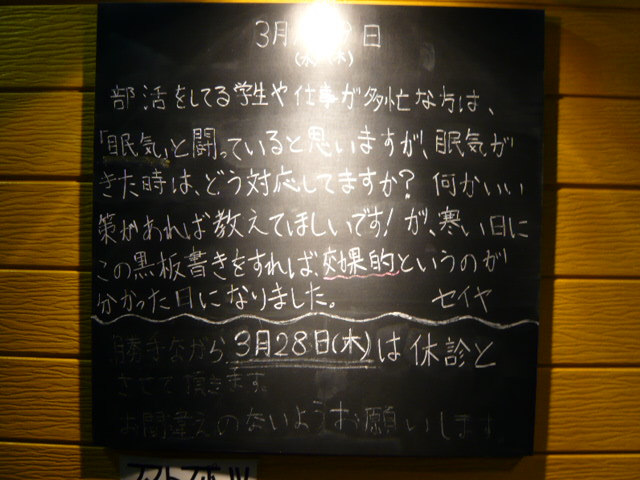 3月 日
部活をしてる学生や仕事が多忙な方は、
「眠気」と闘っていると思いますが、眠気が
きた時は、どう対応してますか? 何かいい
策があれば教えてほしいです! が、寒い日に
この黒板書きをすれば、効果的というのが
分かった日になりました。 セイヤ
勝手ながら 3月28日(木)は休診と
させて頂きます。
お間違えの無いようお願いします